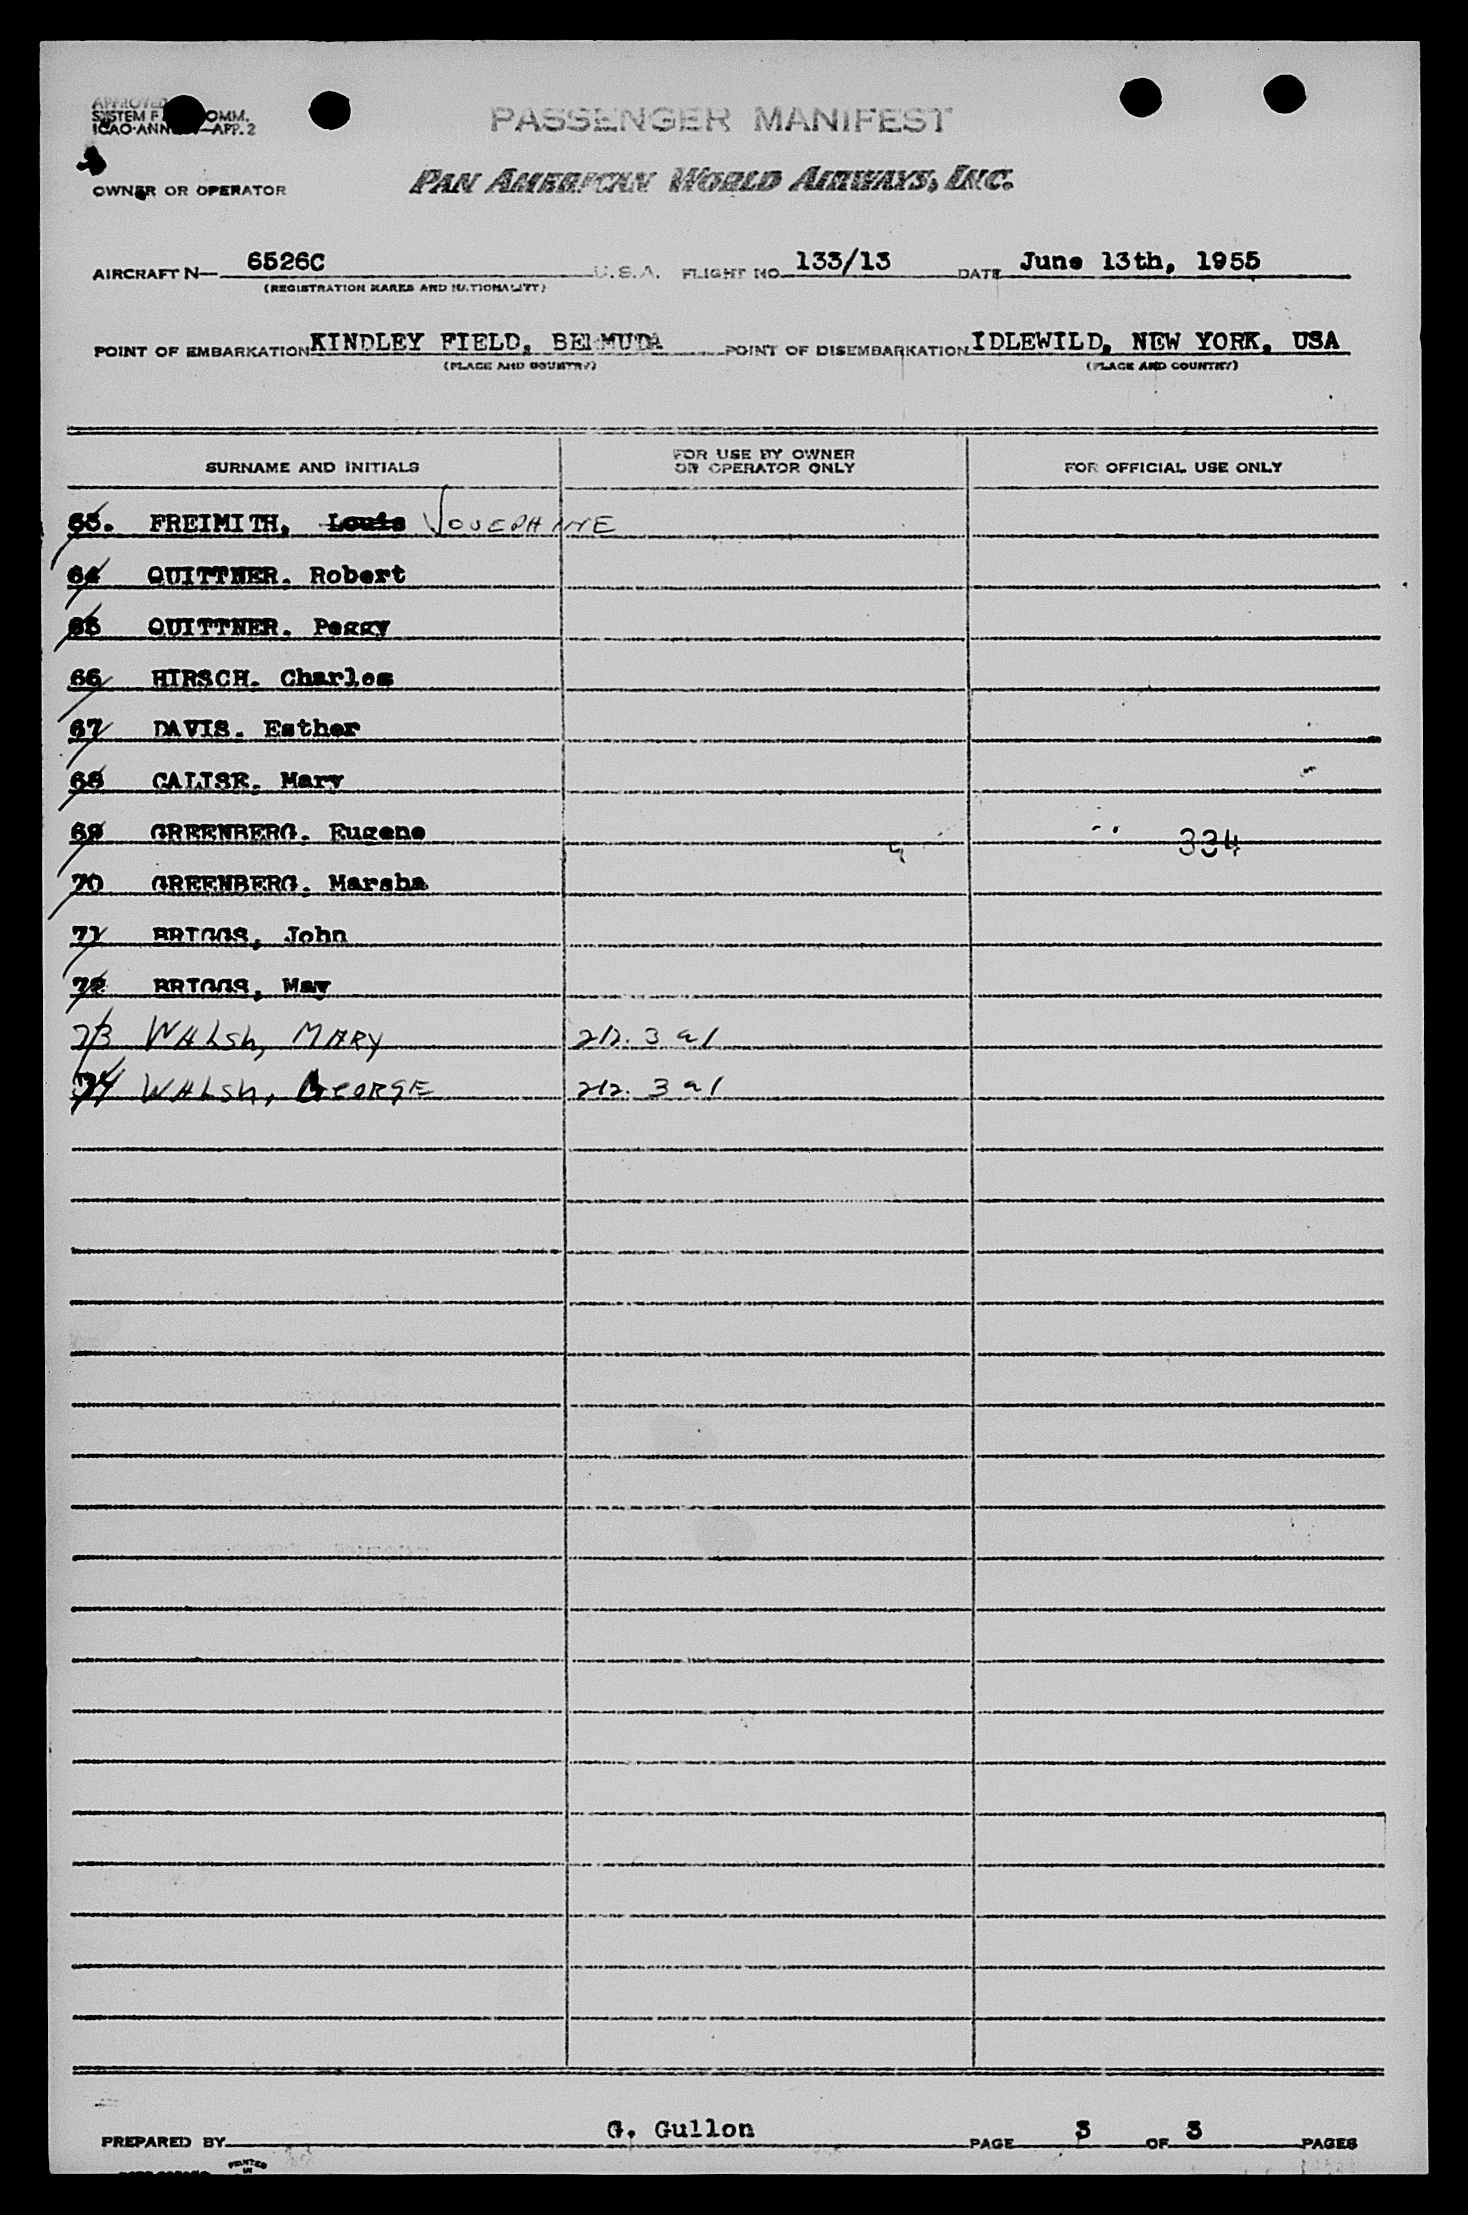 APPROVED
SYSTEM F OMM.
ICAO-ANN —APP. 2
PASSENGER MANIFEST
OWNER OR OPERATOR PAN AMERICAN WORLD AIRWAYS, INC.
AIRCRAFT N— 6526C U.S.A. FLIGHT NO. 133/13 DATE June 13th, 1955
(REGISTRATION MARKS AND NATIONALITY)
POINT OF EMBARKATION KINDLEY FIELD, BERMUDA POINT OF DISEMBARKATION IDLEWILD, NEW YORK, USA
(PLACE AND COUNTRY) (PLACE AND COUNTRY)
SURNAME AND INITIALS FOR USE BY OWNER OR OPERATOR ONLY FOR OFFICIAL USE ONLY
63. FREIMITH, Louis JOSEPHINE
64 QUITTNER, Robert
65 QUITTNER, Peggy
66 HIRSCH, Charles
67 DAVIS, Esther
68 CALISE, Mary
69 GREENBERG, Eugene 334
70 GREENBERG, Marsha
71 BRIGGS, John
72 BRIGGS, May
73 WALSh, MARY 212. 3 a1
74 WALSh, GEORGE 212. 3 a1
PREPARED BY G. Gullon PAGE 3 OF 3 PAGES
PRINTED
IN